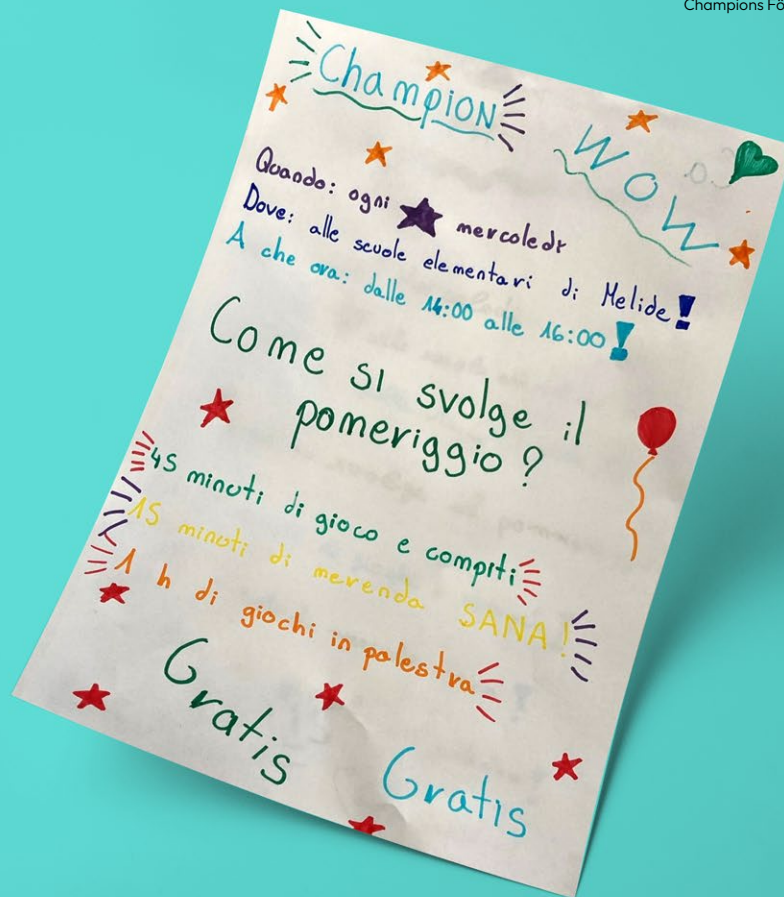 Champions Fö
Champion
WOW
Quando: ogni mercoledì
Dove: alle scuole elementari di Melide!
A che ora: dalle 14:00 alle 16:00!
Come si svolge il
pomeriggio?
45 minuti di gioco e compiti
15 minuti di merenda SANA!
1 h di giochi in palestra
Gratis
Gratis